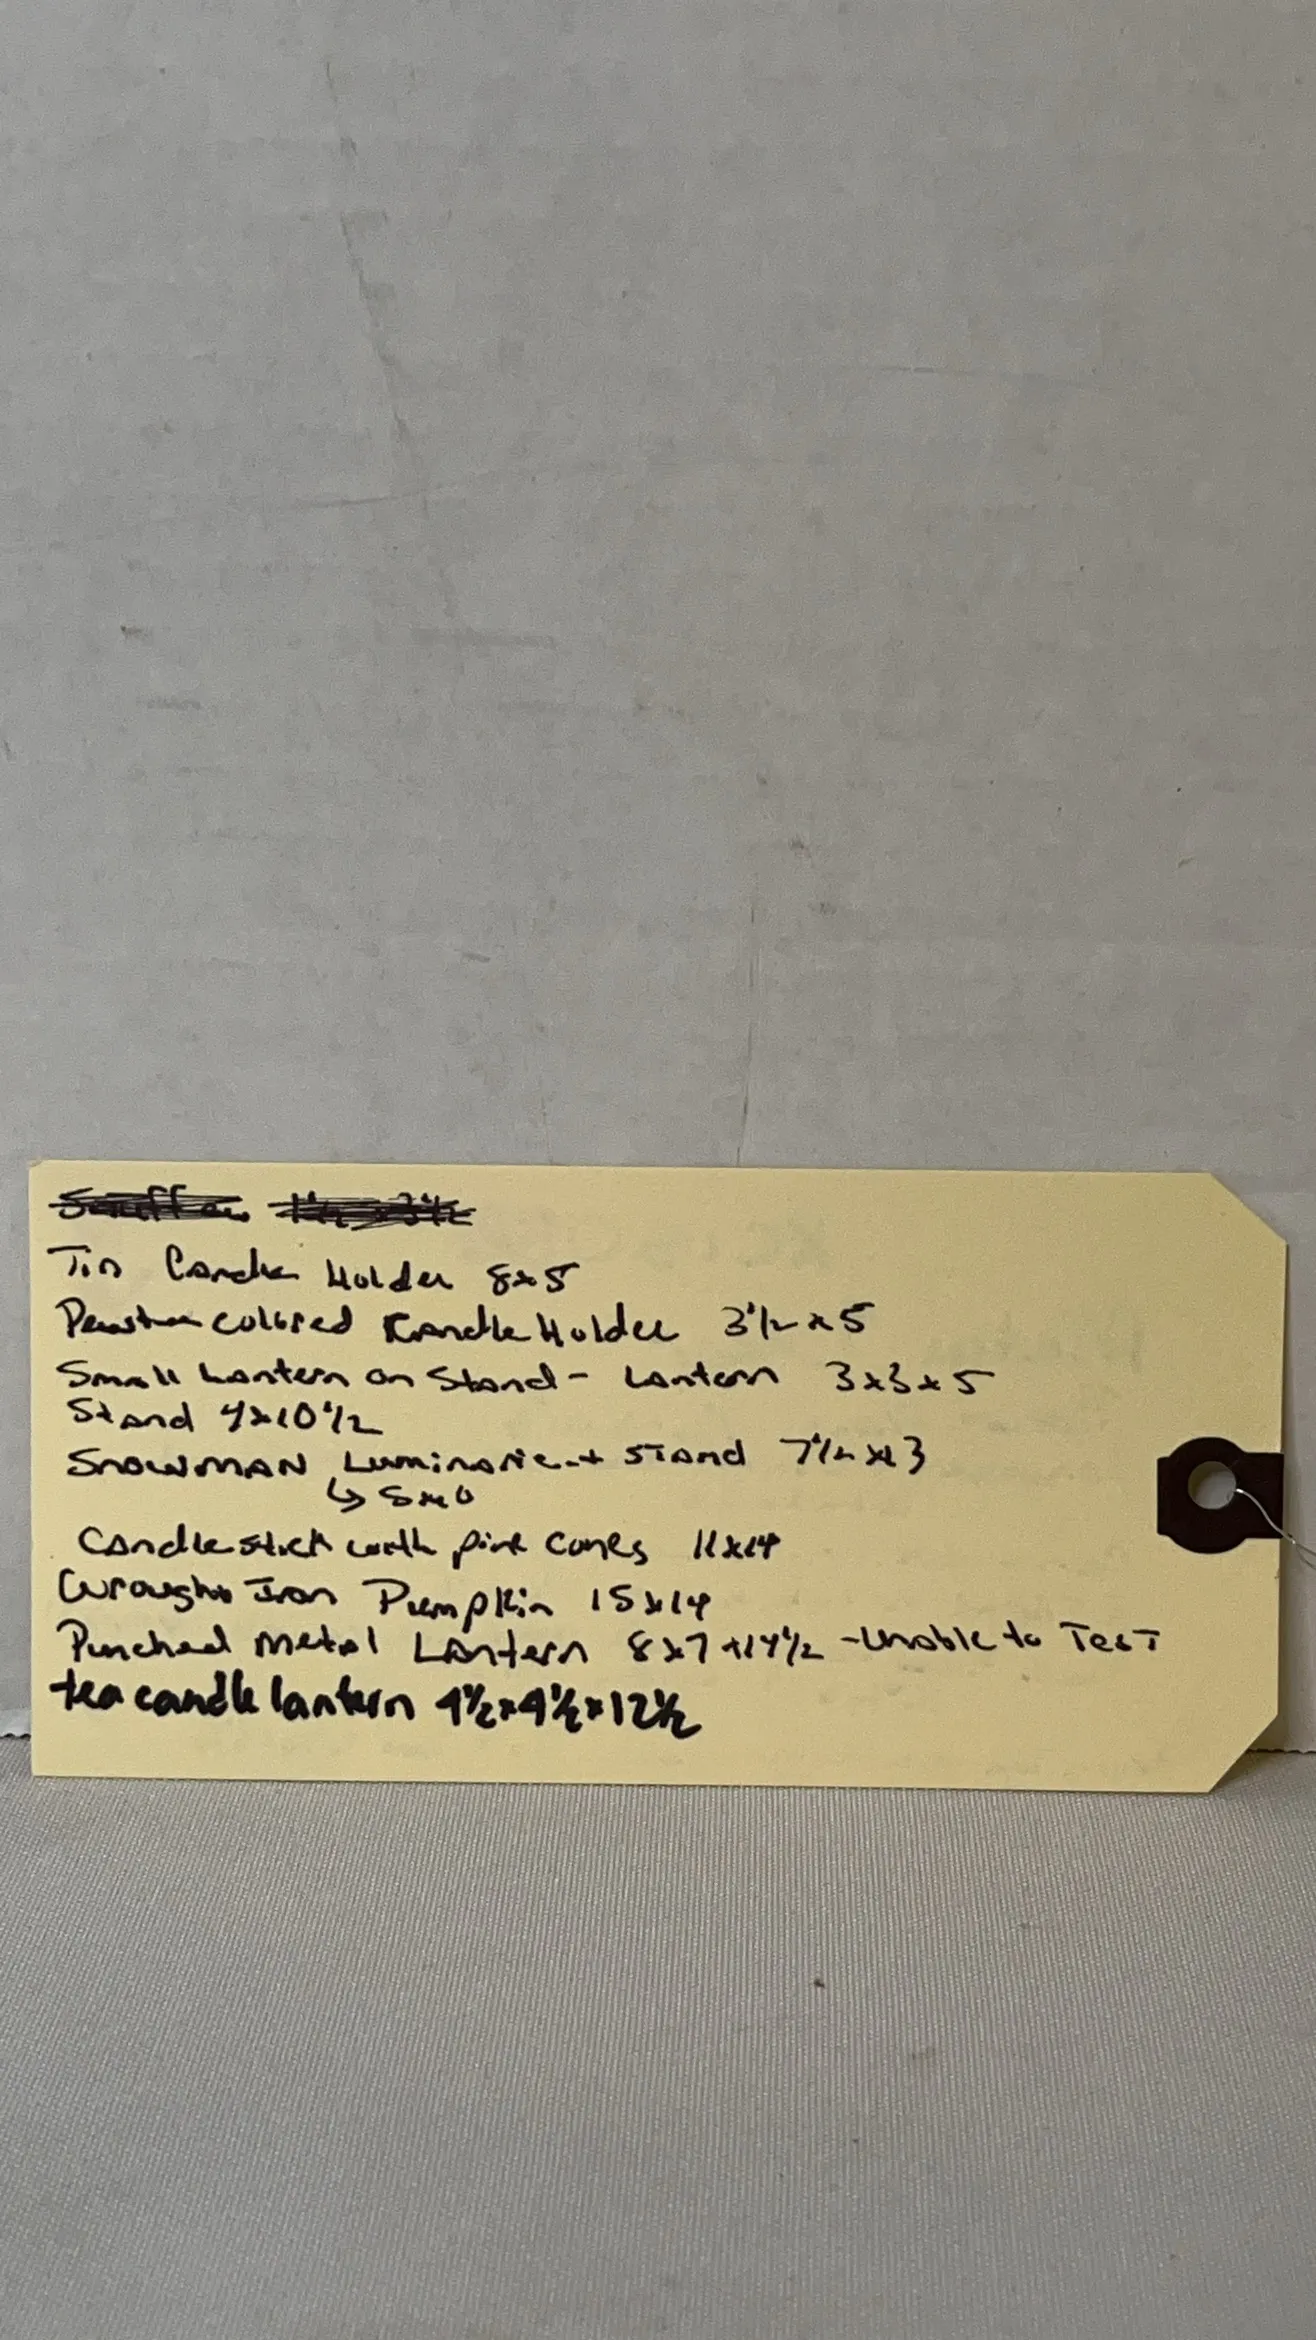 Snuffer 1½ x 3½
Tin Candle Holder 8x5
Pewter colored Kandle Holder 3½ x 5
Small Lantern on Stand - Lantern 3x3x5
Stand 4x10½
SNOWMAN Luminarie + Stand 7½ x
↳ 5x6
Candlestick with pine cones 11x14
Wrought Iron Pumpkin 15x14
Punched Metal Lantern 8x7x14½ - Unable to Test
tea candle lantern 4½ x 4½ x 12½